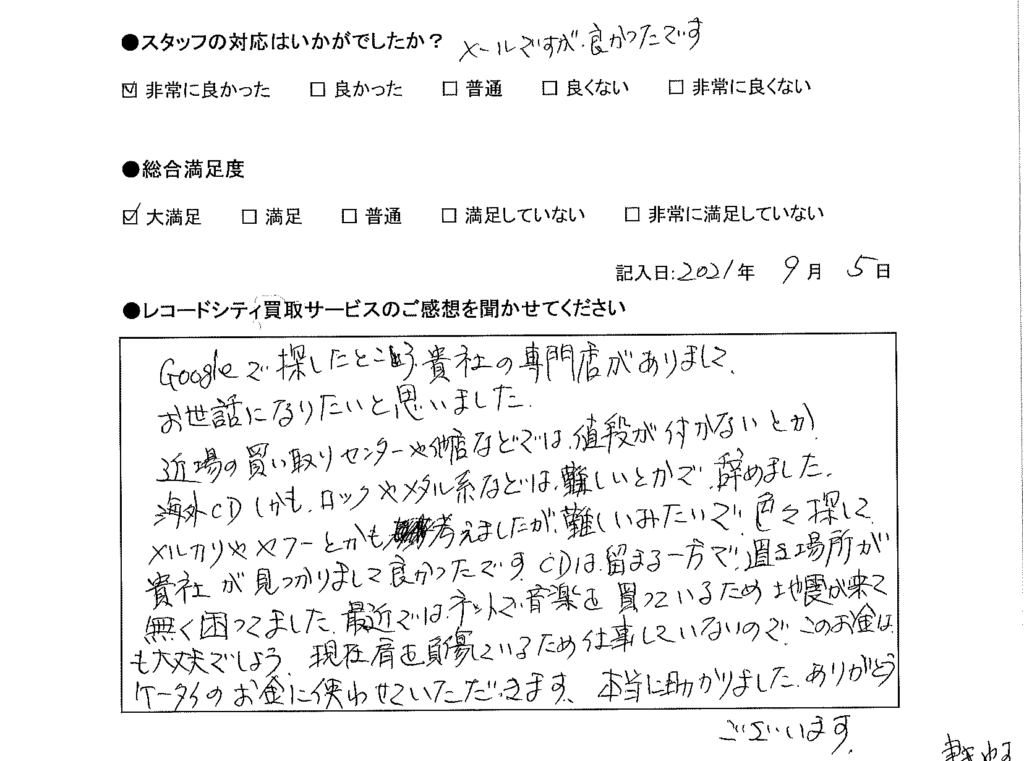 ●スタッフの対応はいかがでしたか？ メールですが、良かったです
☑ 非常に良かった □ 良かった □ 普通 □ 良くない □ 非常に良くない
●総合満足度
☑ 大満足 □ 満足 □ 普通 □ 満足していない □ 非常に満足していない
記入日:2021年 9月 5日
●レコードシティ買取サービスのご感想を聞かせてください
Googleで探したところ、貴社の専門店がありまして、
お世話になりたいと思いました。
近場の買い取りセンターや他店などでは、値段が付かないとか
海外CDしかも、ロックやメタル系などは、難しいとかで、辞めました。
メルカリやヤフーとかも考えましたが、難しいみたいで、色々探して
貴社が見つかりまして良かったです。CDは留まる一方で、置き場所が
無く困ってました。最近ではネットで音楽を買っているため地震が来て
も大丈夫でしよう。現在肩を負傷しているため仕事していないので、このお金は、
ケータイのお金に使わせていただきます、本当に助かりました。ありがとう
ございます。